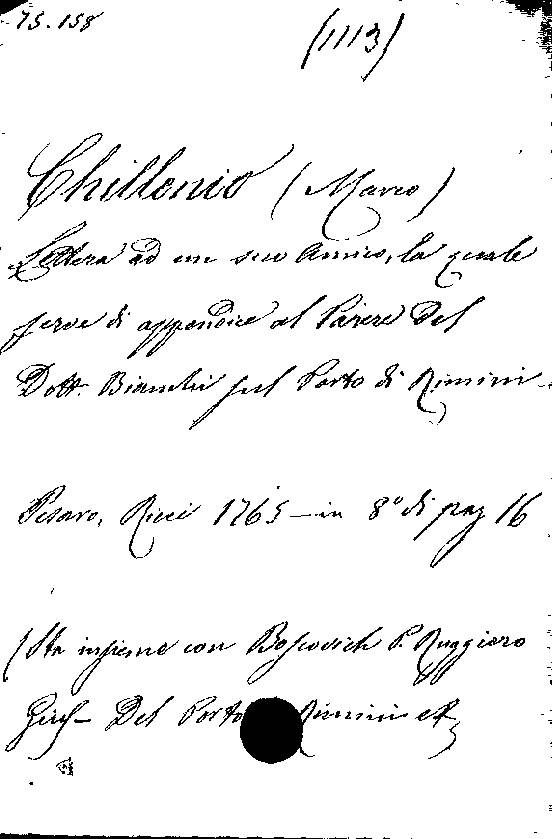 75.158
(1113)
Chillenio (Marco)
Lettera ad un suo Amico, la quale
serve di appendice al Parere del
Dott. Bianchi sul Porto di Rimini -
Pesaro, Ricci 1765 - in 8° di pag 16
(Sta insieme con Boscovich P. Ruggiero
Del Porto Rimini